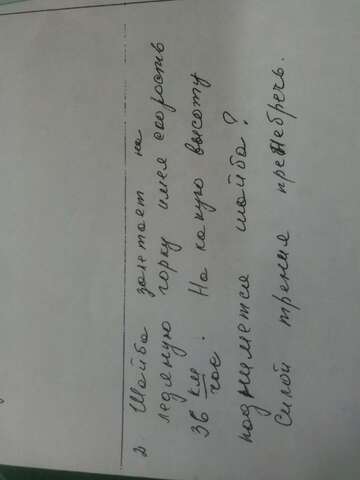 2 Шайба залетает на
ледяную горку имея скорость
36 км/час. На какую высоту
поднимется шайба?
Силой трения пренебречь.